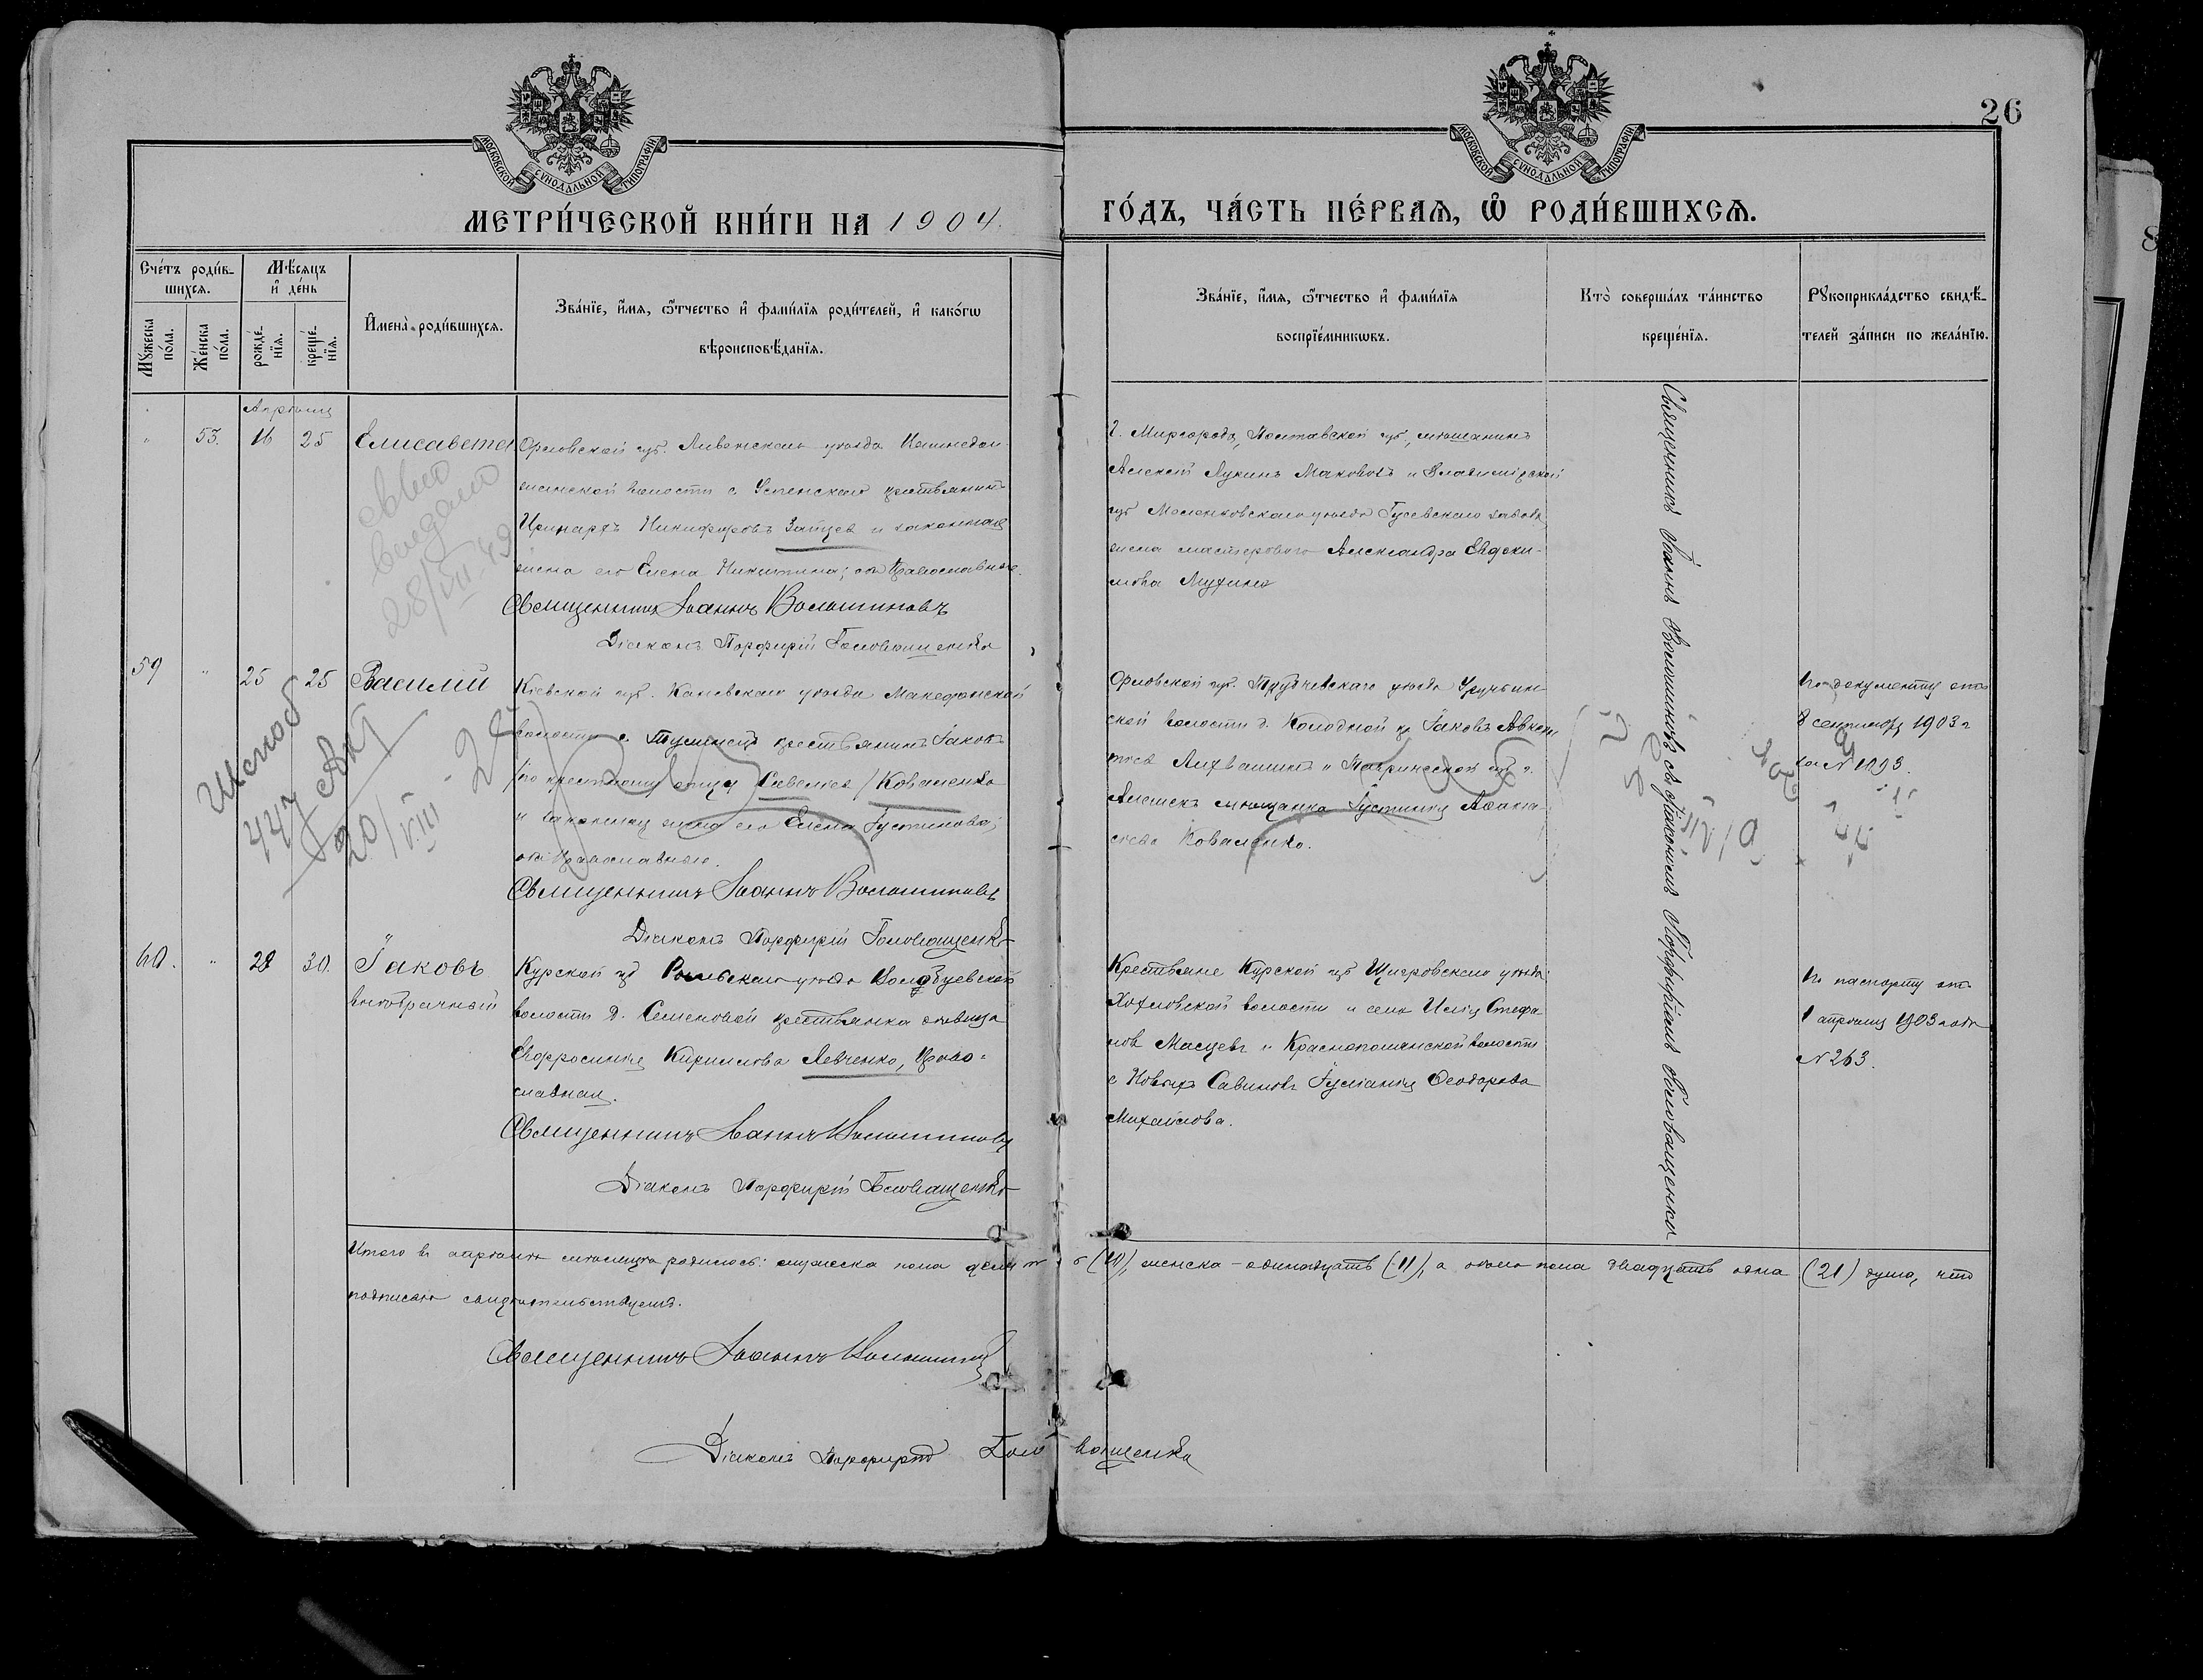 26
МОСКОВСКОЙ СѴНОДАЛЬНОЙ ТИПОГРАФІИ
МОСКОВСКОЙ СѴНОДАЛЬНОЙ ТИПОГРАФІИ
МЕТРИ́ЧЕСКОЙ КНИ́ГИ НА 1904.
ГО́ДЪ, ЧА́СТЬ ПЕ́РВАЯ, Ѽ РОДИ́ВШИХСѦ.
Сче́тъ роди́в-
шихсѧ.
Мꙋ́жеска по́ла.
Же́нска по́ла.
Мѣ́сяцъ
и҆ де́нь
рожде́-
нїѧ.
креще́-
нїѧ.
И҆мена̀ роди́вшихсѧ.
Зва́нїе, и҆́мѧ, ѻ҆́тчество и҆ фами́лїѧ роди́телей, и҆ како́гѡ
вѣроисповѣ́данїѧ.
Зва́нїе, и҆́мѧ, ѻ҆́тчество и҆ фами́лїѧ
воспрїе́мникѡвъ.
Кто̀ соверша́лъ та́инство
креще́нїѧ.
Рꙋкоприкла́дство свидѣ́-
телей за́писи по жела́нїю.
Апрѣля
" 53. 16 25 Елисавета
Орловской губ. Ливенскаго уѣзда
волости с. Успенскаго крестьянинъ
Никифоровъ Зайцев и законная
жена его Елена Никитина; оба православные.
Священникъ Іоаннъ Волошиновъ
Діаконъ Порфирій Головащенко
г. Миргорода, Полтавской губ, мѣщанинъ
Алексѣй Лукинъ Маковозъ и Владимірской
губ Меленковскаго уѣзда Гусевскаго завода
жена мастероваго Александра Евдоки-
мова Мухина
Св-во
выдано
28/VII 49
59 " 25 25 Василій
Кіевской губ. Каневскаго уѣзда Македонской
волости с. Тулинецъ крестьянинъ Іаковъ
/по крестному отцу Савелiев / Коваленко
и законная жена его Елена Іустинова;
оба православные.
Священникъ Іоаннъ Волошиновъ
Діаконъ Порфирій Головащенко
Орловской губ. Трубчевскаго уѣзда
ской волости д. Колодной кр Іаковъ
и Таврической губ г.
Алешекъ мѣщанка Іустинія Аѳана-
сіева Коваленко.
По документу отъ
8 сентября 1903 г
за № 1093.
447
20/VIII
60. " 28 30. Іаковъ
внѣбрачный
Курской губ Рыльскаго уѣзда
волости д. Семеновой крестьянка дѣвица
Евфросинія Кириллова Левченко, право-
славная.
Священникъ Іоаннъ Волошиновъ
Діаконъ Порфирій Головащенко
Крестьяне Курской губ Щигровскаго уѣзда:
Хохловской волости и села Илія Стефа
нов Масцевъ и Краснополянской волости
с Новыхъ Савиновъ Іуліанія Ѳеодорова
Михайлова.
По паспорту отъ
1 апрѣля 1903 года
№ 263.
Священникъ Іоаннъ Волошиновъ съ діакономъ Порфиріемъ Головащенко
Итого въ апрѣлѣ мѣсяцѣ родилось: мужеска пола десять (10), женска - одинадцать (11), а обоего пола двадцать одна (21) душа, что
подписомъ свидѣтельствуемъ.
Священникъ Іоаннъ Волошиновъ
Діаконъ Порфирій Головащенко